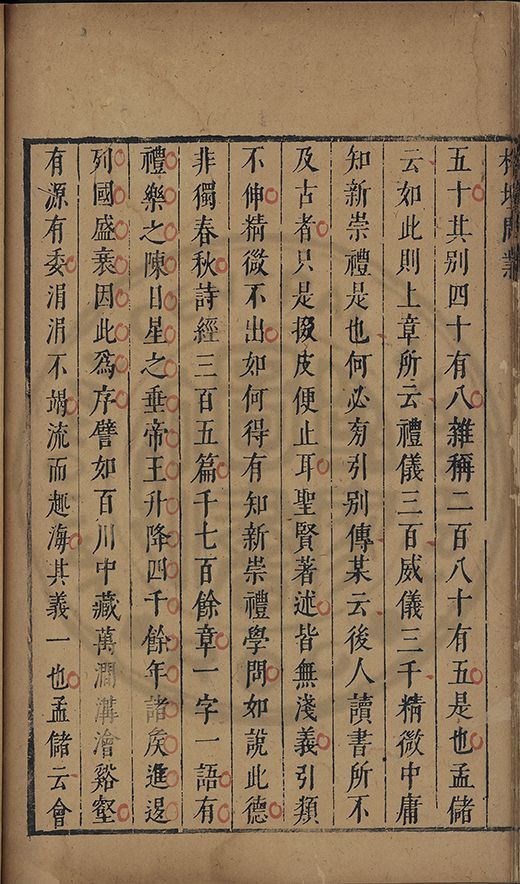 五十其别四十有八雜稱二百八十有五是也孟儲
云如此則上章所云禮儀三百威儀三千精微中庸
知新崇禮是也何必旁引别傳某云後人讀書所不
及古者只是掇皮便止耳聖賢著述皆無淺義引類
不伸精微不出如何得有知新崇禮學問如說此德
非獨春秋詩經三百五篇千七百餘章一字一語有
禮樂之陳日星之垂帝王升降四千餘年諸矦進退
列國盛衰因此爲序譬如百川中藏萬澗溝澮谿壑
有源有委涓涓不竭流而趣海其義一也孟儲云會